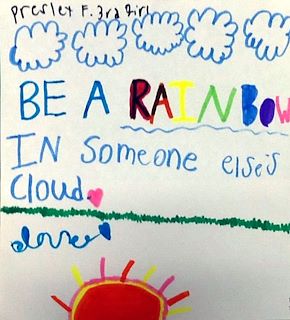 Preslet F. 3rd Girl
BE A RAINBOW
IN Someone else's
Cloud.